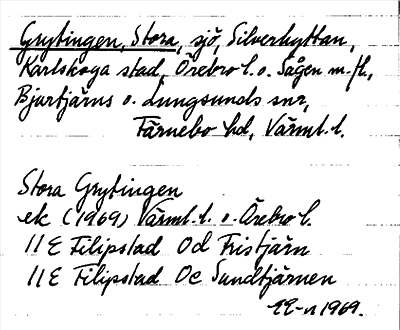 Grytingen, Stora, sjö, Silverhyttan,
Karlskoga stad, Örebro l. o. Sågen m.fl.,
Bjurtjärns o. Lungsunds snr,
Färnebo hd, Värml. l.
Stora Grytingen
ek (1969) Värml. l. o. Örebro l.
11E Filipstad 0d Fristjärn
11E Filipstad 0e Sundtjärnen
1969.